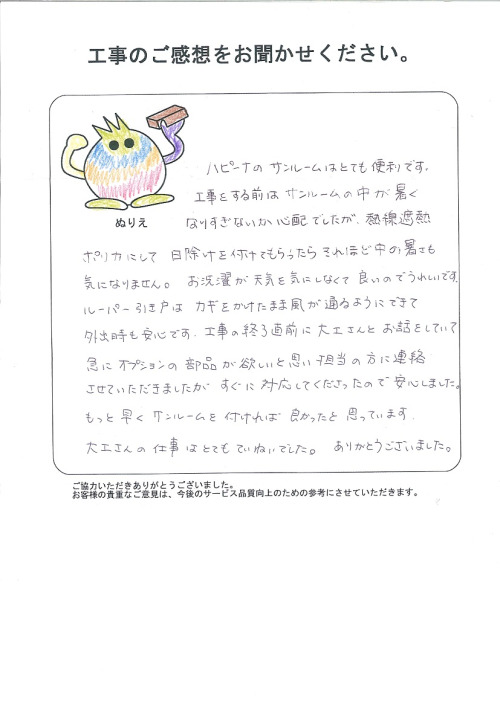 工事のご感想をお聞かせください。
ぬりえ
ハピーナの サンルームはとても便利です。
工事をする前は サンルームの中が暑く
なりすぎないか心配でしたが、熱線遮熱
ポリカにして 日除けを付けてもらったら それほど中の暑さも
気になりません。 お洗濯が天気を気にしなくて良いのでうれしいです。
ルーバー引き戸は カギをかけたまま風が通るようにできて
外出時も安心です。工事の終了直前に大工さんとお話をしていて
急にオプションの部品が欲しいと思い担当の方に連絡
させていただきましたが すぐに対応してくださったので安心しました。
もっと早く サンルームを付ければ良かったと思っています。
大工さんの仕事はとてもていねいでした。 ありがとうございました。
ご協力いただきありがとうございました。
お客様の貴重なご意見は、今後のサービス品質向上のための参考にさせていただきます。